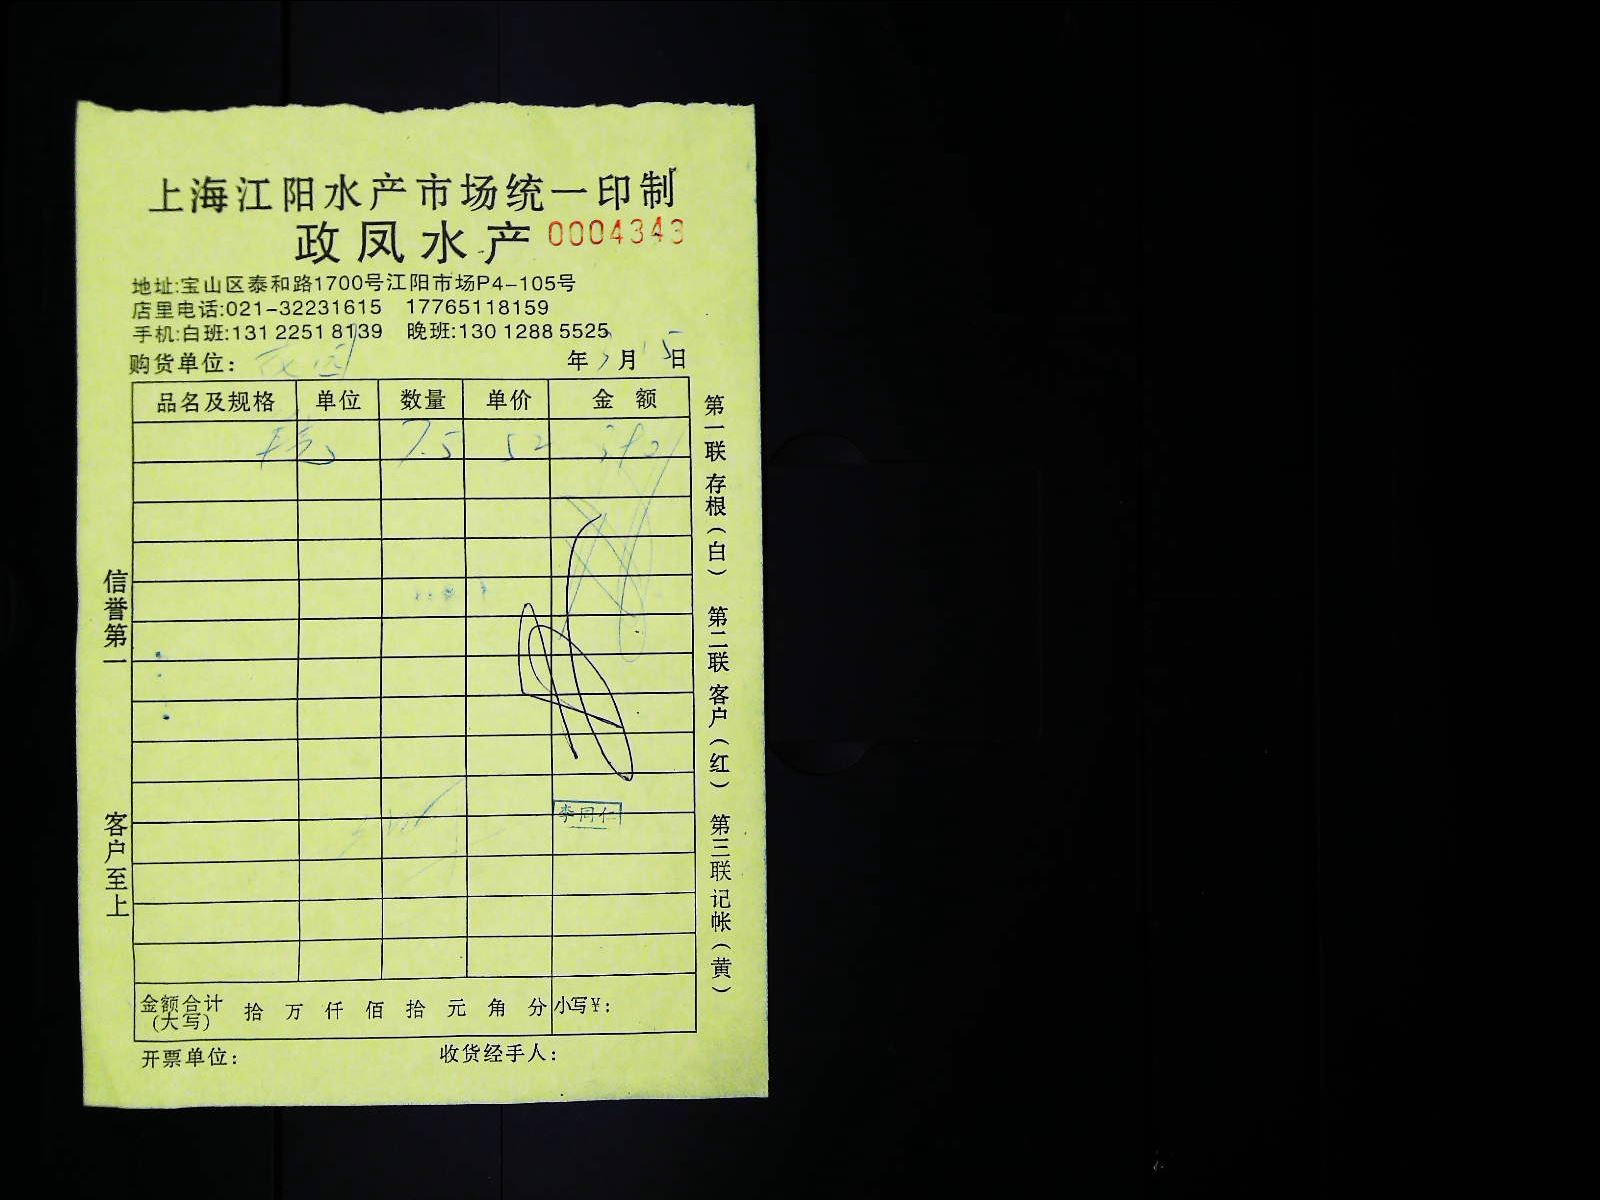 上海江阳水产市场统一印制
政凤水产 0004343
地址:宝山区泰和路1700号江阳市场P4-105号
店里电话:021-32231615 17765118159
手机:白班:131 2251 8139 晚班:130 1288 5525
购货单位: 年 月 15日
品名及规格 单位 数量 单价 金 额
7.5 52
李同仁
金额合计(大写) 拾 万 仟 佰 拾 元 角 分 小写¥:
开票单位: 收货经手人:
信誉第一 客户至上
第一联存根(白) 第二联客户(红) 第三联记帐(黄)